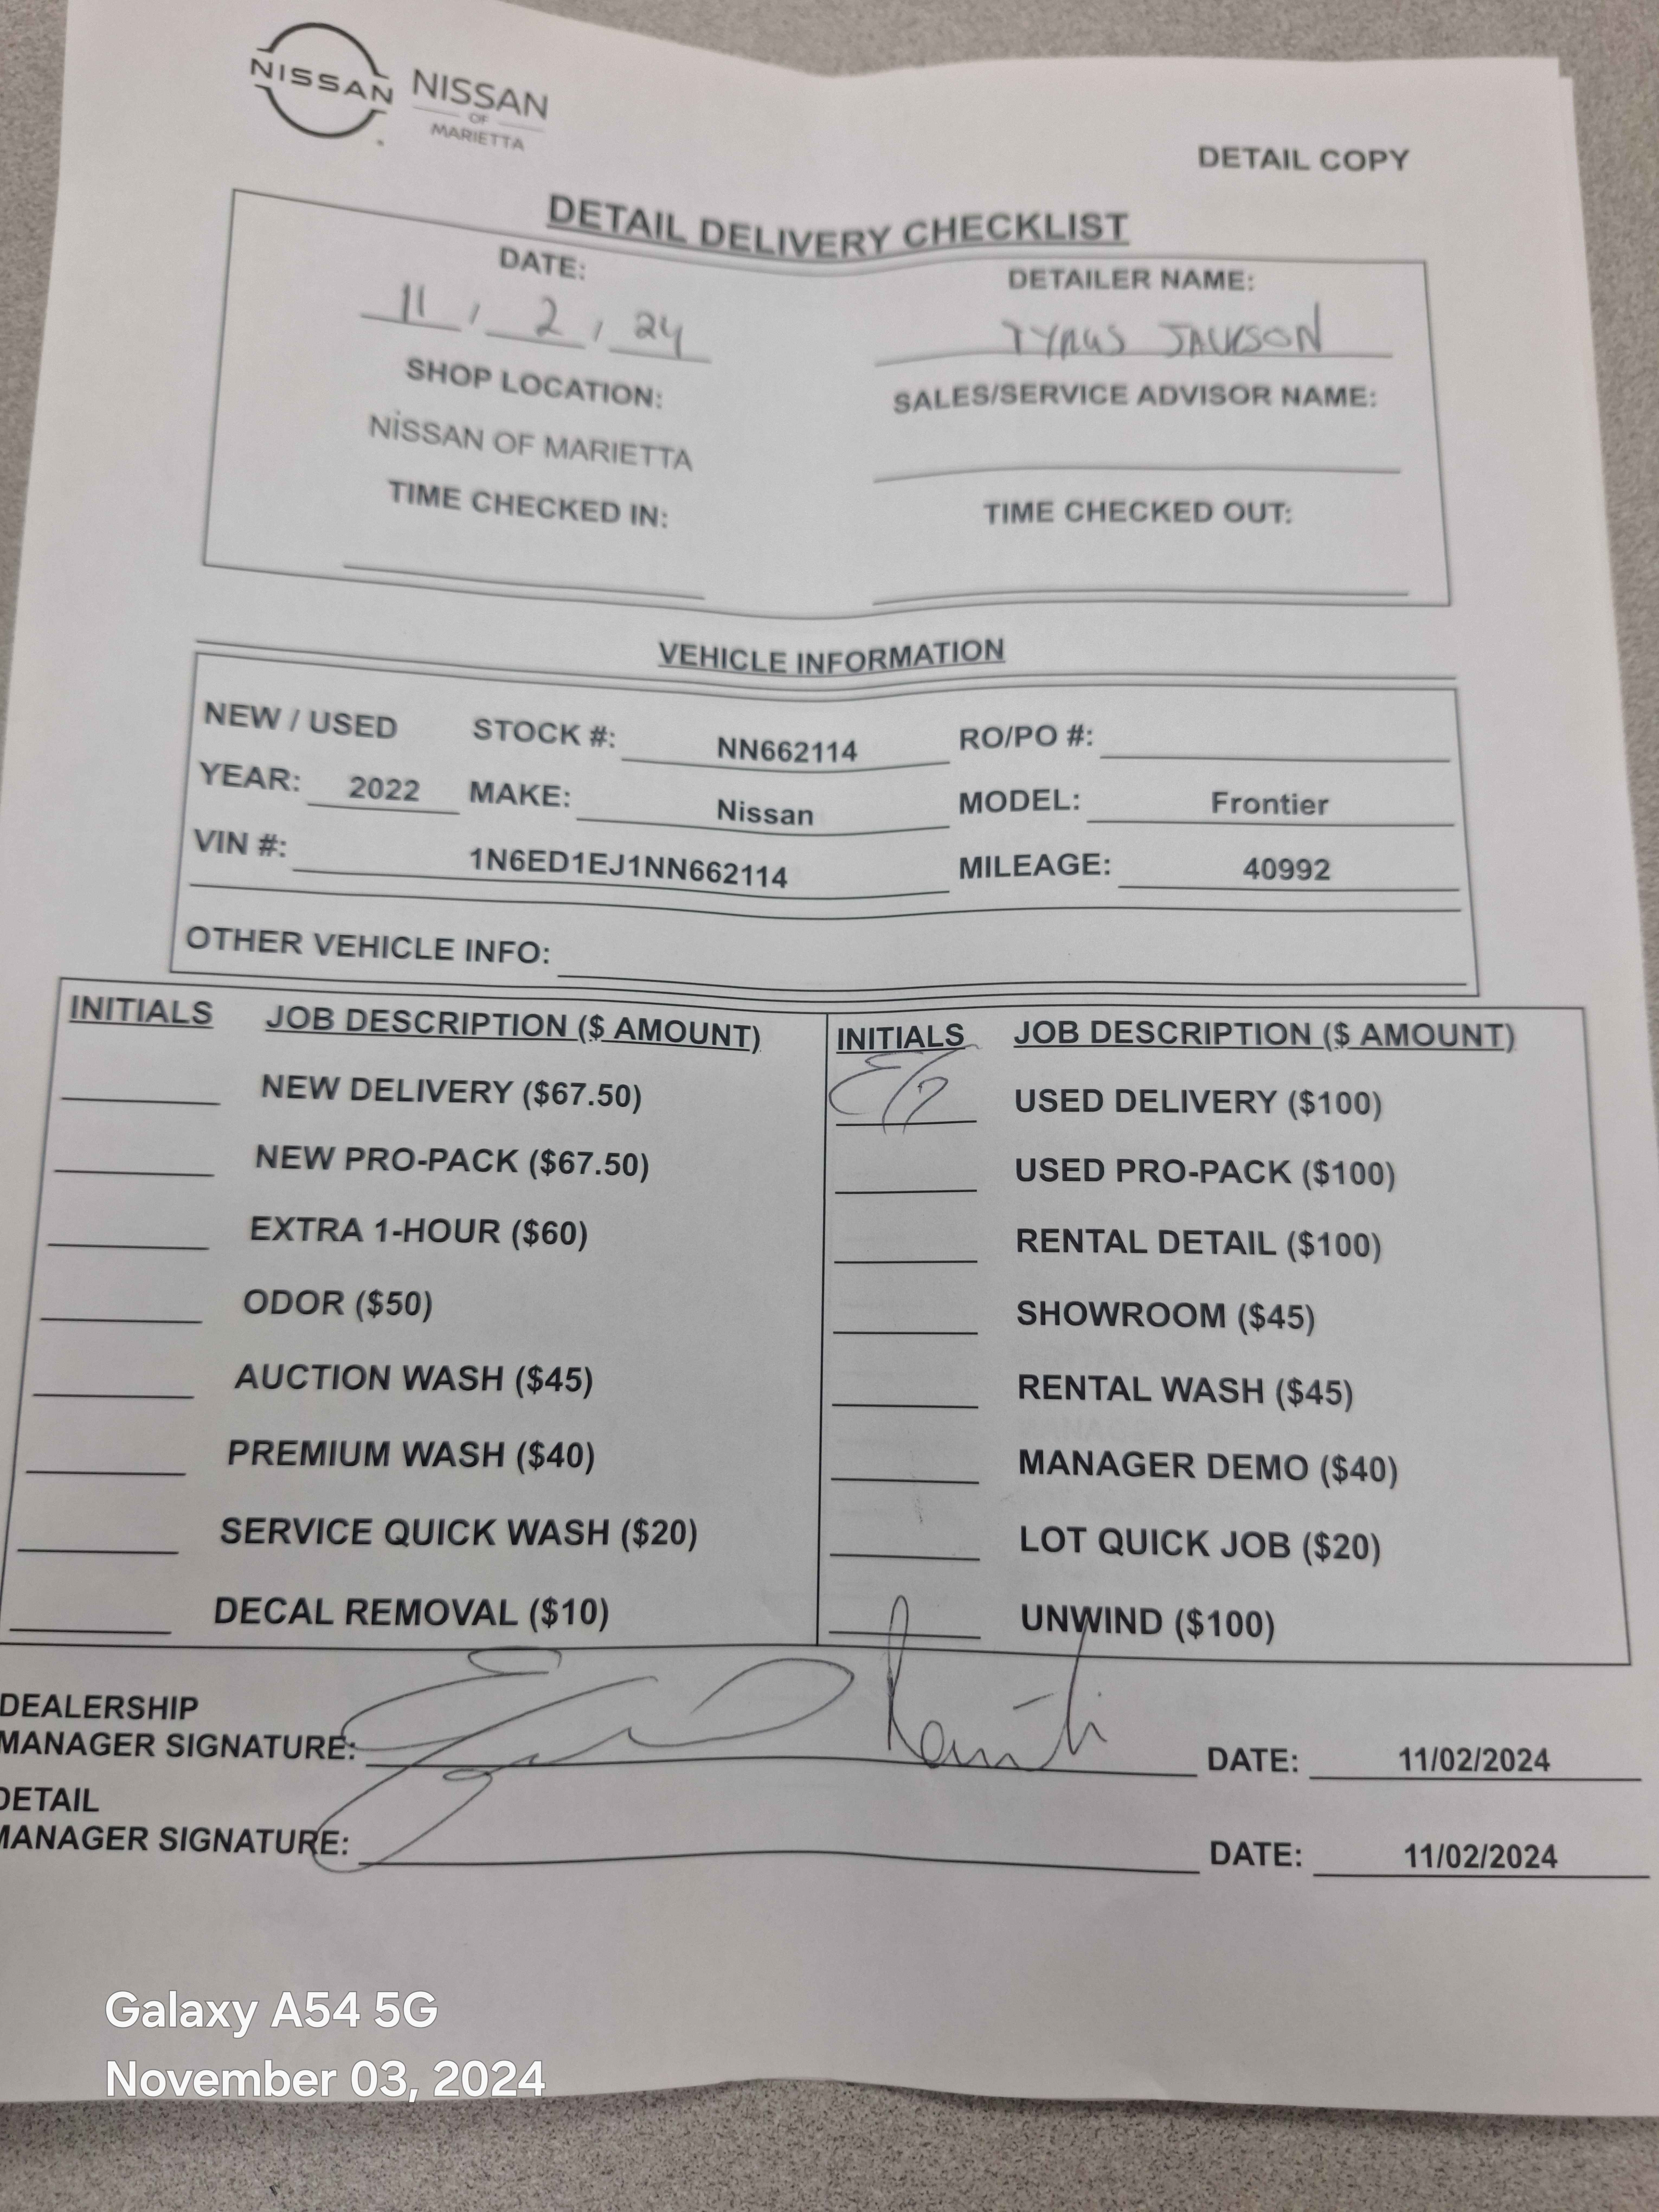 NISSAN NISSAN
OF
MARIETTA
DETAIL COPY
DETAIL DELIVERY CHECKLIST
DATE: DETAILER NAME:
11 / 2 / 24 TYRUS JACKSON
SHOP LOCATION: SALES/SERVICE ADVISOR NAME:
NISSAN OF MARIETTA
TIME CHECKED IN: TIME CHECKED OUT:
VEHICLE INFORMATION
NEW / USED STOCK #: NN662114 RO/PO #:
YEAR: 2022 MAKE: Nissan MODEL: Frontier
VIN #: 1N6ED1EJ1NN662114 MILEAGE: 40992
OTHER VEHICLE INFO:
INITIALS JOB DESCRIPTION ($ AMOUNT) INITIALS JOB DESCRIPTION ($ AMOUNT)
NEW DELIVERY ($67.50) USED DELIVERY ($100)
NEW PRO-PACK ($67.50) USED PRO-PACK ($100)
EXTRA 1-HOUR ($60) RENTAL DETAIL ($100)
ODOR ($50) SHOWROOM ($45)
AUCTION WASH ($45) RENTAL WASH ($45)
PREMIUM WASH ($40) MANAGER DEMO ($40)
SERVICE QUICK WASH ($20) LOT QUICK JOB ($20)
DECAL REMOVAL ($10) UNWIND ($100)
DEALERSHIP
MANAGER SIGNATURE: DATE: 11/02/2024
DETAIL
MANAGER SIGNATURE: DATE: 11/02/2024
Galaxy A54 5G
November 03, 2024